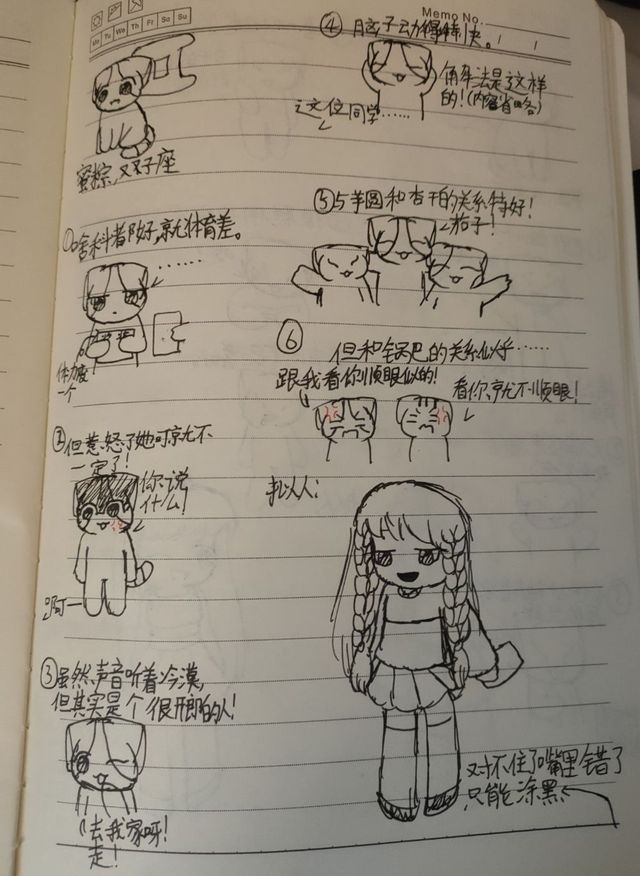 Memo No.
Mo Tu We Th Fr Sa Su
蜜粽,双子座
①啥科都好,就体育差。
……
体力废
一个
②但惹怒了她可就不
一定了!
你说
什么!
啊一
③虽然声音听着冷漠,
但其实是个很开朗的人!
去我家呀!
走!
④脑子动得特快。
这位同学……
解法是这样
的!(内容省略)
⑤与芋圆和杏干的关系特好!
茄子!
⑥
但和锅巴的关系似乎……
跟我看你顺眼似的!
看你就不顺眼!
拟人:
对不住了嘴里错了
只能涂黑